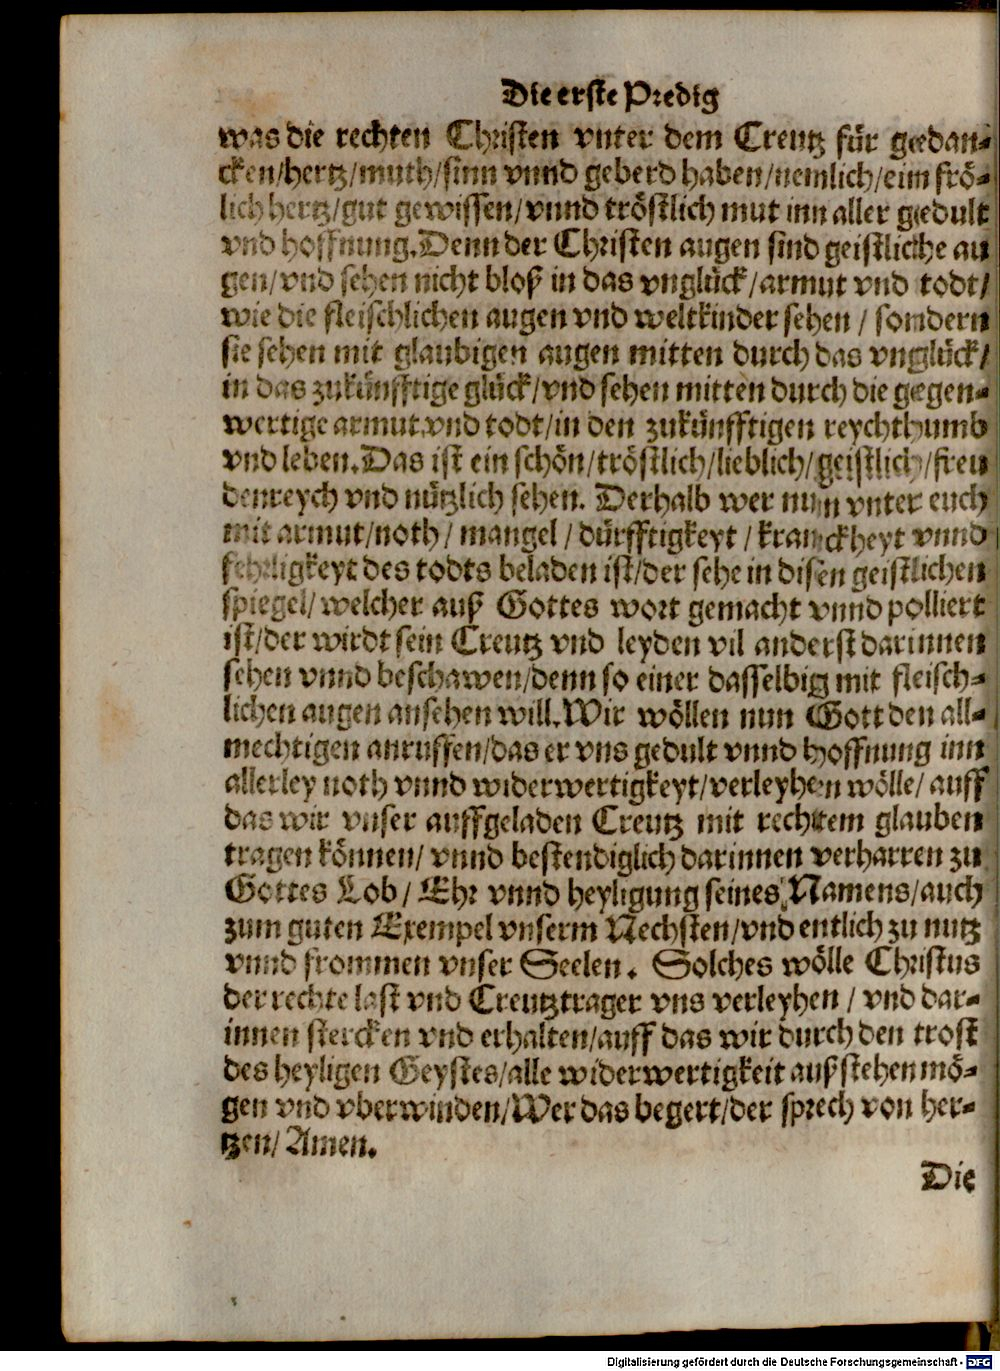 Die erste Predig
was die rechten Christen vnter dem Creutz für gedan-
cken/hertz/muth/sinn vnnd geberd haben/nemlich/eim frö-
lich hertz/gut gewissen/vnnd tröstlich mut inn aller gedult
vnd hoffnung. Denn der Christen augen sind geistliche au
gen/vnd sehen nicht bloß in das vnglück/armut vnd todt/
wie die fleischlichen augen vnd weltkinder sehen/sondern
sie sehen mit glaubigen augen mitten durch das vnglück/
in das zukünfftige glück/vnd sehen mitten durch die gegen-
wertige armut vnd todt/in den zukünfftigen reychthumb
vnd leben. Das ist ein schön/tröstlich/lieblich/geistlich/freu
denreych vnd nützlich sehen. Derhalb wer nun vnter euch
mit armut/noth/mangel/dürfftigkeyt/kranckheyt vnnd
fehrligkeyt des todts beladen ist/der sehe in disen geistlichen
spiegel/welcher auß Gottes wort gemacht vnnd polliert
ist/der wirdt sein Creutz vnd leyden vil anderst darinnen
sehen vnnd beschawen/denn so einer dasselbig mit fleisch-
lichen augen ansehen will. Wir wöllen nun Gott den all-
mechtigen anruffen/das er vns gedult vnnd hoffnung inn
allerley noth vnnd widerwertigkeyt/verleyhen wölle/auff
das wir vnser auffgeladen Creutz mit rechtem glauben
tragen können/vnnd bestendiglich darinnen verharren zu
Gottes Lob/Ehr vnnd heyligung seines Namens/auch
zum guten Exempel vnserm Nechsten/vnd entlich zu nutz
vnnd frommen vnser Seelen. Solches wölle Christus
der rechte last vnd Creutztrager vns verleyhen/vnd dar-
innen stercken vnd erhalten/auff das wir durch den trost
des heyligen Geystes/alle widerwertigkeit außstehen mö-
gen vnd vberwinden/Wer das begert/der sprech von her-
tzen/Amen.
Die
Digitalisierung gefördert durch die Deutsche Forschungsgemeinschaft - DFG